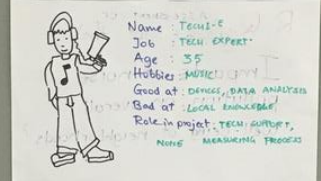 Name : TECHI-E
Job : TECH EXPERT
Age : 35
Hobbies : MUSIC
Good at : DEVICES, DATA ANALYSIS
Bad at : LOCAL KNOWLEDGE
Role in project : TECH SUPPORT,
NOISE MEASURING PROCESS